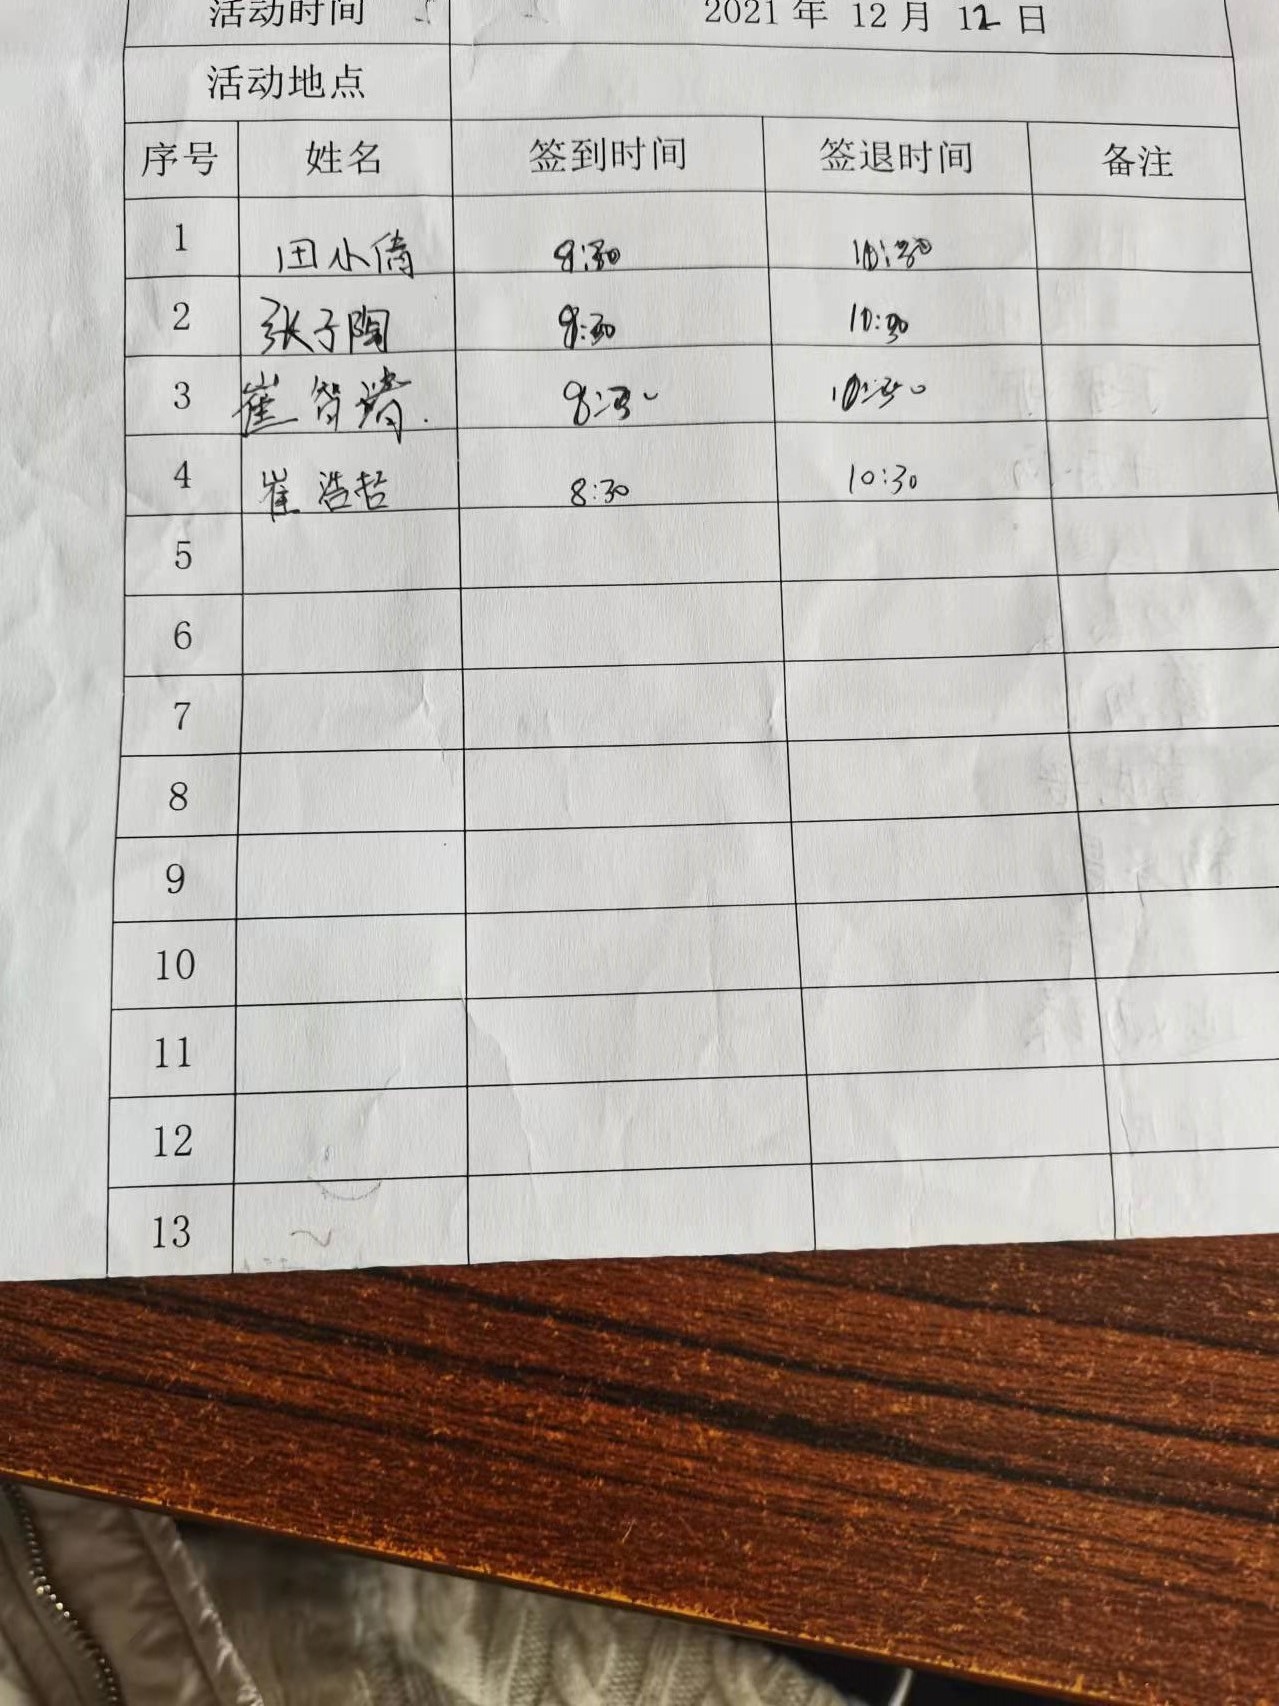 活动时间 2021 年 12 月 12 日
活动地点
序号 姓名 签到时间 签退时间 备注
1 田小倩 8:30 10:30
2 张子陶 8:30 10:30
3 崔智 8:30 10:30
4 崔浩哲 8:30 10:30
5
6
7
8
9
10
11
12
13